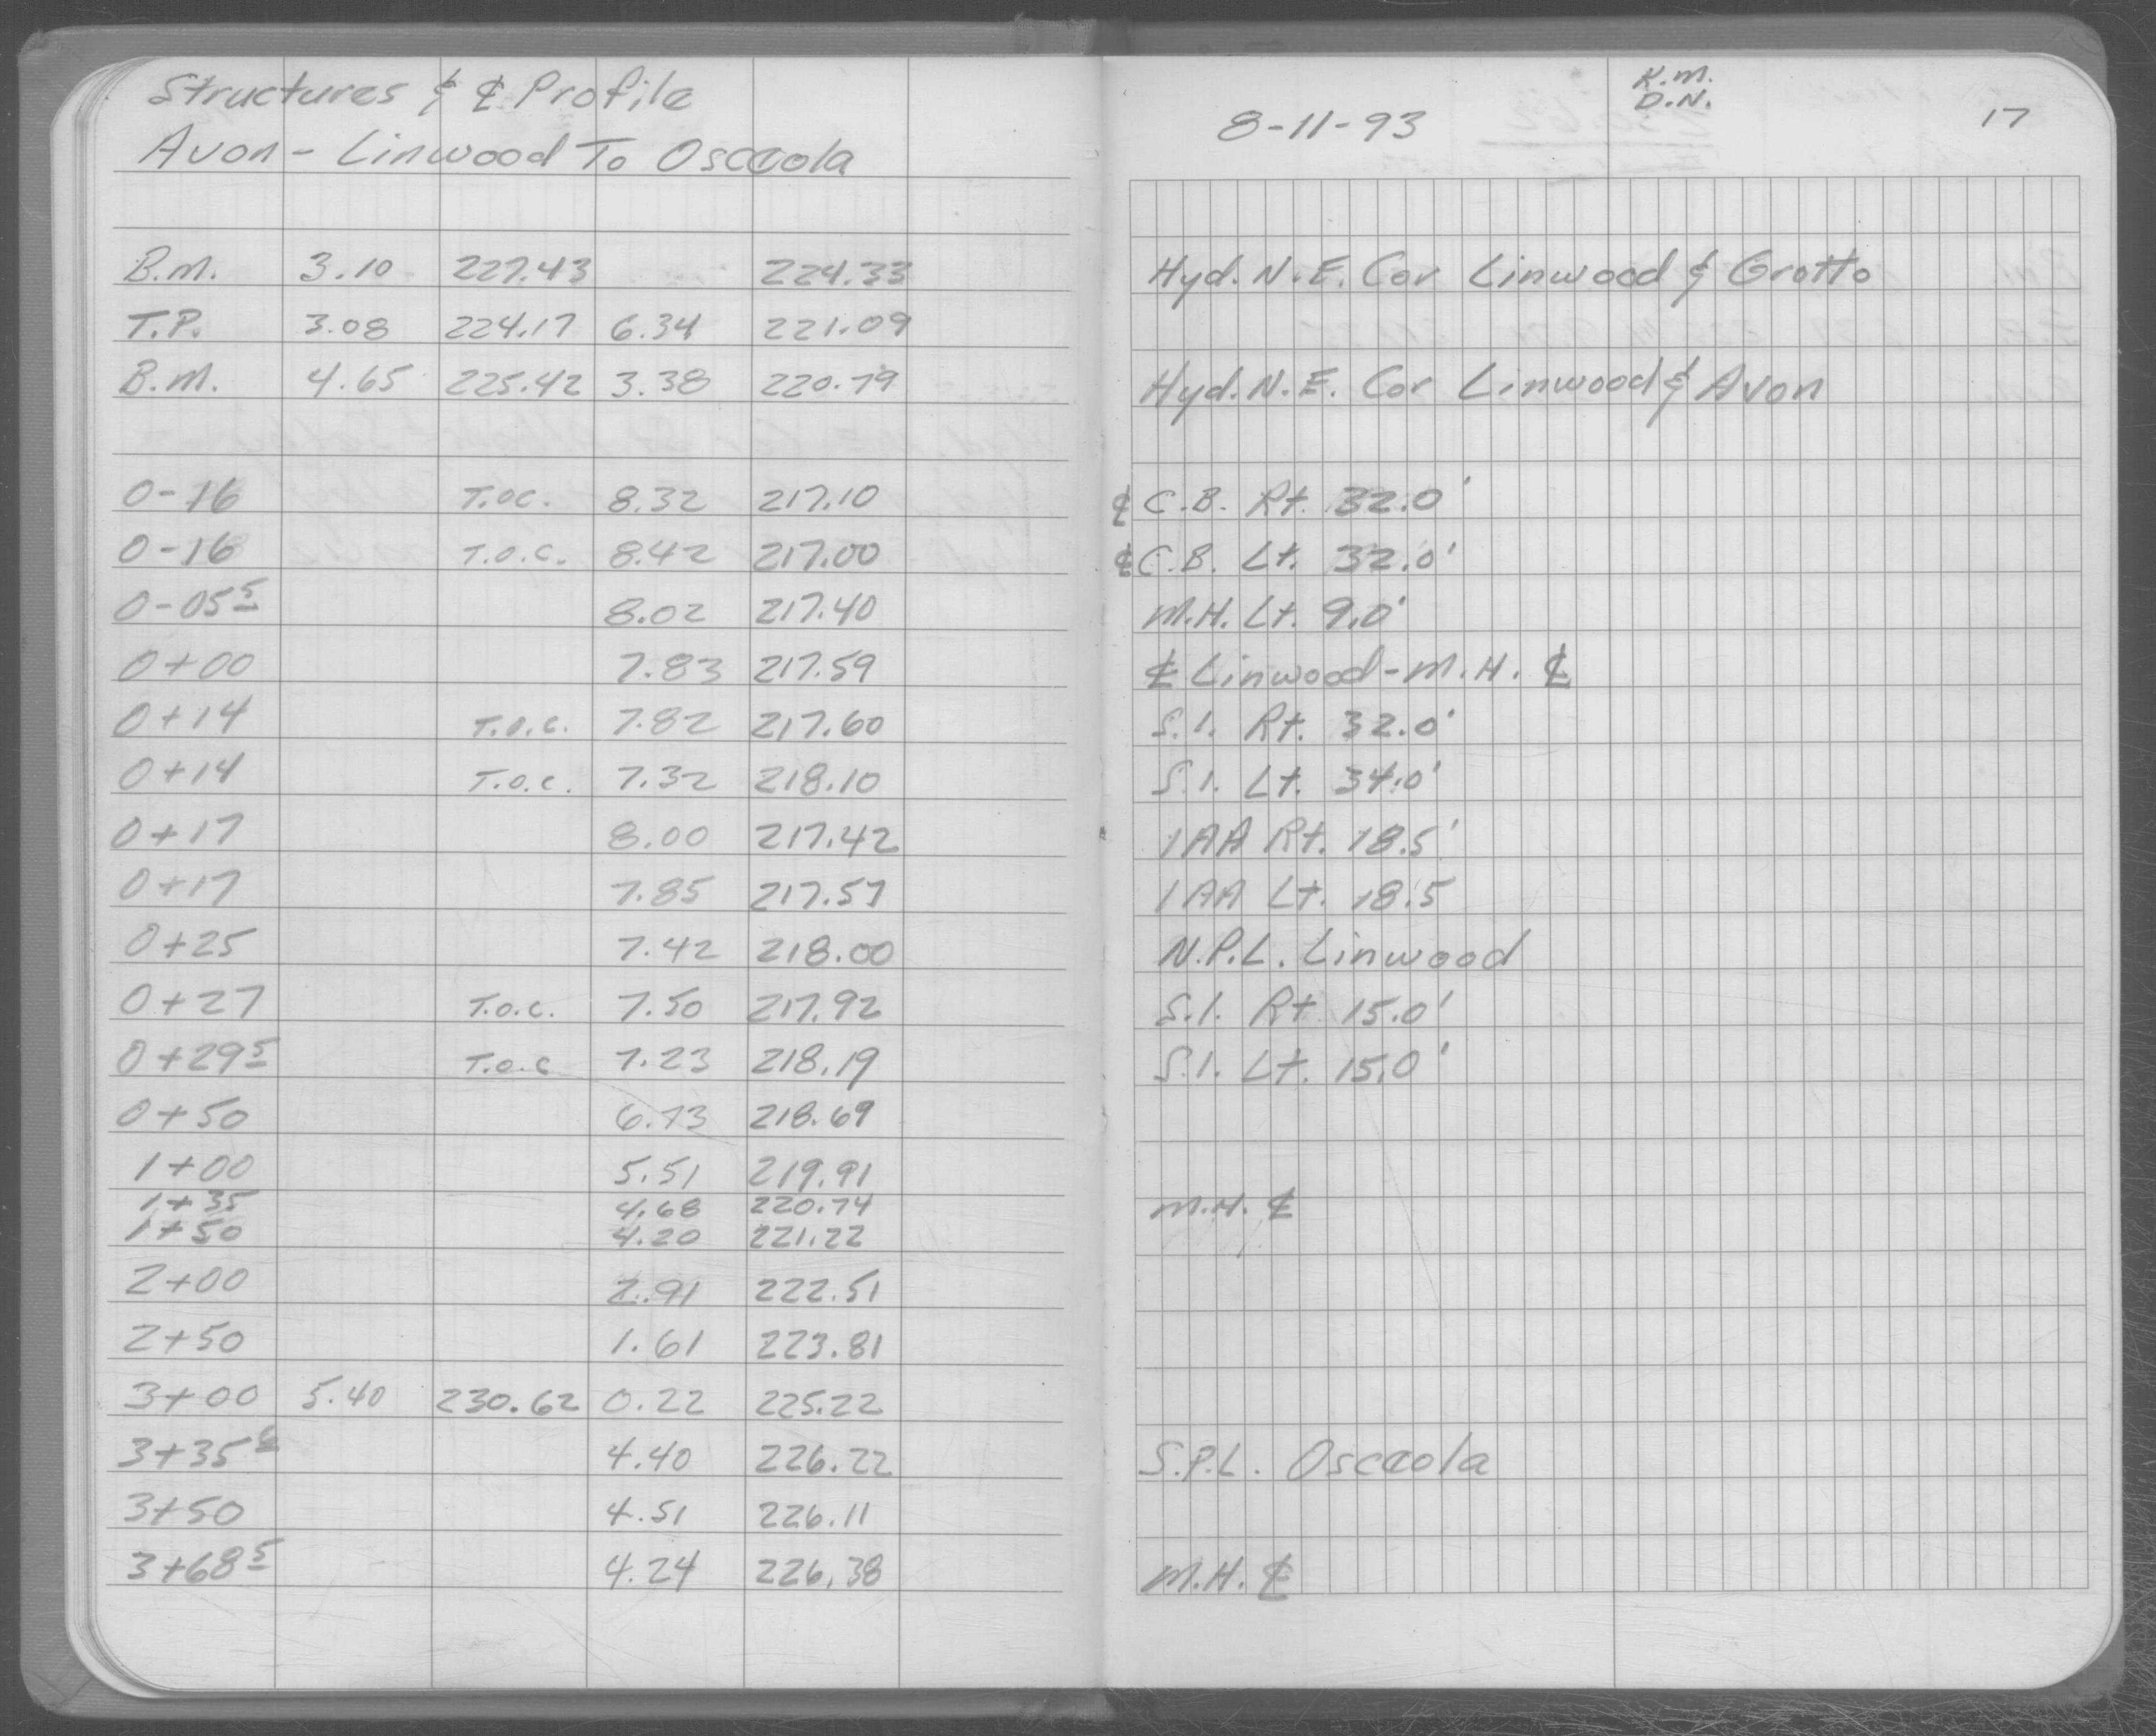 Structures & ℄ Profile
Avon - Linwood To Osceola
B.M. 3.10 227.43 224.33
T.P. 3.08 224.17 6.34 221.09
B.M. 4.65 225.42 3.38 220.79
0-16 T.O.C. 8.32 217.10
0-16 T.O.C. 8.42 217.00
0-05⁵ 8.02 217.40
0+00 7.83 217.59
0+14 T.O.C. 7.82 217.60
0+14 T.O.C. 7.32 218.10
0+17 8.00 217.42
0+17 7.85 217.57
0+25 7.42 218.00
0+27 T.O.C. 7.50 217.92
0+29⁵ T.O.C 7.23 218.19
0+50 6.73 218.69
1+00 5.51 219.91
1+35 4.68 220.74
1+50 4.20 221.22
2+00 2.91 222.51
2+50 1.61 223.81
3+00 5.40 230.62 0.22 225.22
3+35 4.40 226.22
3+50 4.51 226.11
3+68⁵ 4.24 226.38
K.M.
D.N.
8-11-93 17
Hyd. N.E. Cor Linwood & Grotto
Hyd. N.E. Cor Linwood & Avon
℄ C.B. Rt. 32.0'
℄ C.B. Lt. 32.0'
M.H. Lt. 9.0'
℄ Linwood - M.H. ℄
S.I. Rt. 32.0'
S.I. Lt. 34.0'
1AA Rt. 18.5'
1AA Lt. 18.5
N.P.L. Linwood
S.I. Rt 15.0'
S.I. Lt. 15.0'
M.H. ℄
S.P.L. Osceola
M.H. ℄